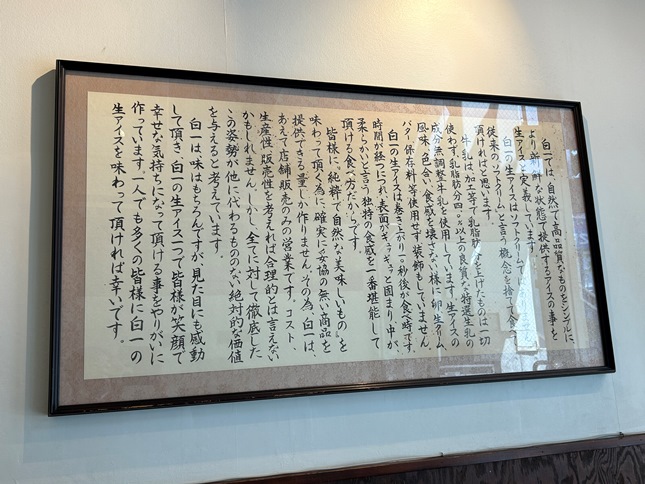 白一では、自然で高品質なものをシンプルに、
より新鮮な状態で提供するアイスの事を
生アイスと定義しています。
白一の生アイスはソフトクリームでは
従来のソフトクリームと言う概念を捨てて食べて
頂ければと思います。
牛乳は、加工等で乳脂肪分を上げたものは一切
使わず、乳脂肪分四・〇%以上の良質な特選生乳の
成分無調整牛乳を使用しています。生アイスの
風味、色合い、食感を壊さない様に卵、生クリーム、
バター、保存料等使用せず、装飾もしていません。
白一の生アイスは巻き上がり一〇秒後が食べ時です。
時間が経つにつれ表面がギュギュギュっと固まり、中が、
柔らかいと言う独特の食感を一番堪能して
頂ける食べ方だからです。
皆様に〝純粋で自然な美味しいもの〟を
味わって頂く為に、確実に〝妥協の無い商品〟を
提供できる量しか作りません。その為、白一は、
あえて店舗販売のみの営業です。コスト、
生産性、販売性を考えれば合理的とは言えない
かもしれません。しかし、全てに対して徹底した
この姿勢が他に代わるもののない絶対的な価値
を与えると考えています。
白一は味はもちろんですが、見た目にも感動
して頂き、白一の生アイス一つで皆様が笑顔で
幸せな気持ちになって頂ける事をやりがいに
作っています。一人でも多くの皆様に白一の
生アイスを味わって頂ければ幸いです。